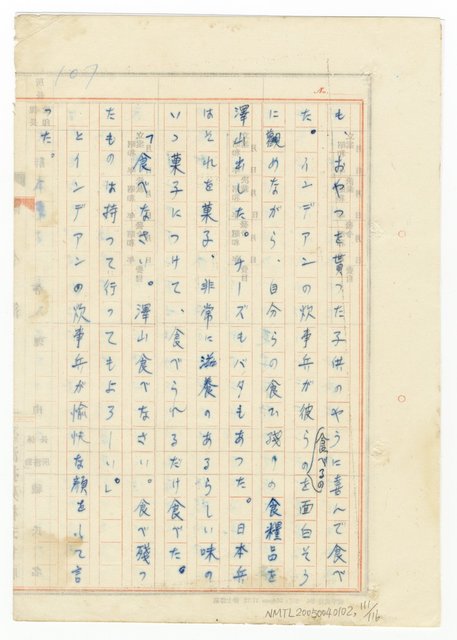 107
も、おやつを貰った子供のやうに喜んで食べ
た。インデアンの炊事兵が彼らの食べるのを面白そう
に観めながら、自分らの食ひ残りの食糧品を
澤山出した。チーズもバタもあった。日本兵
はそれを菓子、非常に滋養のあるらしい味の
いゝ菓子につけて、食べられるだけ食べた。
「食べなさい。澤山食べなさい。食べ残っ
たものは持って行ってもよろしいし」
とインデアンの炊事兵が愉快な顔をして言
った。
NMTL20050040102, 111/116